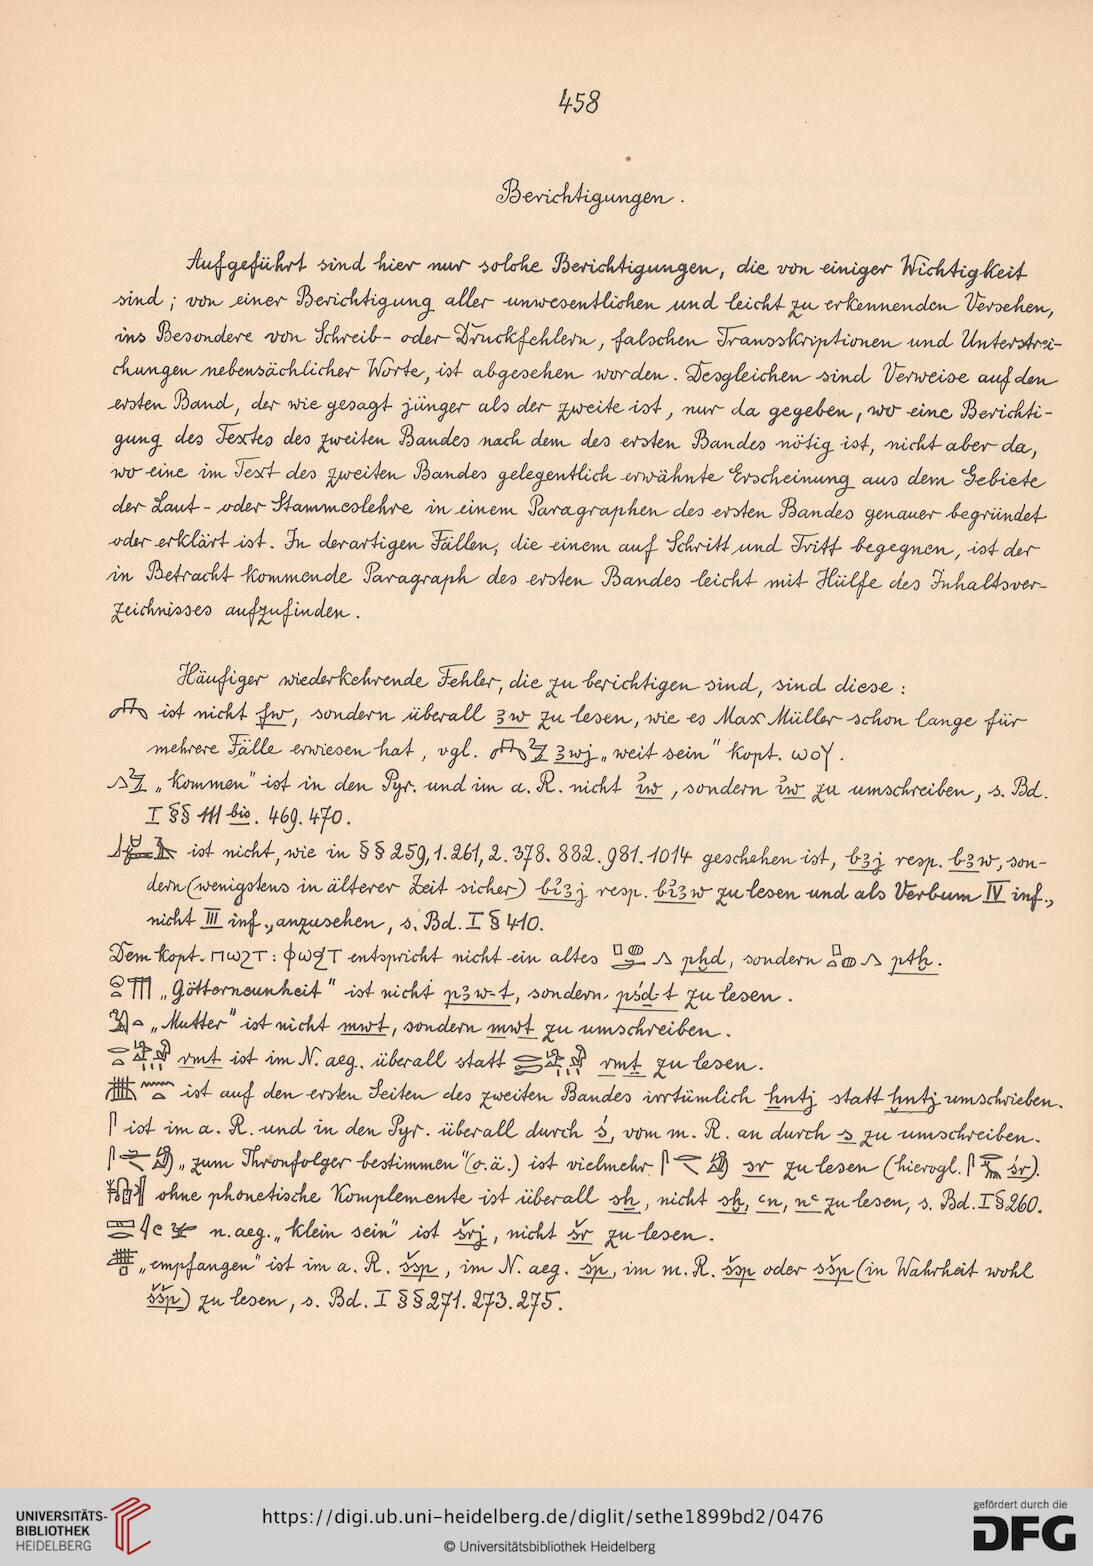 458
Berichtigungen.
Aufgeführt sind hier nur solche Berichtigungen, die von einiger Wichtigkeit
sind; von einer Berichtigung aller unwesentlichen und leicht zu erkennenden Versehen,
ins Besondere von Schreib- oder Druckfehlern, falschen Transskriptionen und Unterstrei-
chungen nebensächlicher Worte, ist abgesehen worden. Desgleichen sind Verweise auf den
ersten Band, der wie gesagt jünger als der zweite ist, nur da gegeben, wo eine Berichti-
gung des Textes des zweiten Bandes nach dem des ersten Bandes nötig ist, nicht aber da,
wo eine im Text des zweiten Bandes gelegentlich erwähnte Erscheinung aus dem Gebiete
der Laut- oder Stammeslehre in einem Paragraphen des ersten Bandes genauer begründet
oder erklärt ist. In derartigen Fällen, die einem auf Schritt und Tritt begegnen, ist der
in Betracht kommende Paragraph des ersten Bandes leicht mit Hülfe des Inhaltsver-
zeichnisses aufzufinden.
Häufiger wiederkehrende Fehler, die zu berichtigen sind, sind diese:
ist nicht fw, sondern überall ꜣw zu lesen, wie es Max Müller schon lange für
mehrere Fälle erwiesen hat, vgl. ꜣwj „weit sein" kopt. ⲱⲟⲩ.
„kommen" ist in den Pyr. und im a. R. nicht, sondern zu umschreiben, s. Bd.
I §§ 111 bis. 469. 470.
ist nicht, wie in §§ 259,1. 261,2. 378. 882. 981. 1014 geschehen ist, bꜣj resp. bꜣw, son-
dern (wenigstens in älterer Zeit sicher) bi̓ꜣj resp. bi̓ꜣw zu lesen und als Verbum IV inf.,
nicht III inf., anzusehen, s. Bd. I § 410.
Dem kopt. ⲡⲱϩⲧ : ⲫⲱϧⲧ entspricht nicht ein altes pḫd, sondern ptḫ.
„Götterneunheit" ist nicht pꜣw-t, sondern pśḏ-t zu lesen.
„Mutter" ist nicht mwt, sondern mwt zu umschreiben.
rmt ist im N. aeg. überall statt rmṯ zu lesen.
ist auf den ersten Seiten des zweiten Bandes irrtümlich ẖntj statt ḫntj umschrieben.
ist im a. R. und in den Pyr. überall durch ś, vom m. R. an durch s zu umschreiben.
„zum Thronfolger bestimmen" (o. ä.) ist vielmehr sr zu lesen (hierogl. śr).
ohne phonetische Komplemente ist überall sẖ, nicht sḫ, ꜥn, nꜥ zu lesen, s. Bd. I § 260.
n. aeg. „klein sein" ist šrj, nicht šr zu lesen.
„empfangen" ist im a. R. šsp, im N. aeg. šp, im m. R. šsp oder sšp (in Wahrheit wohl
ššp) zu lesen, s. Bd. I §§ 271. 273. 275.
UNIVERSITÄTS-
BIBLIOTHEK
HEIDELBERG
https://digi.ub.uni-heidelberg.de/diglit/sethe1899bd2/0476
© Universitätsbibliothek Heidelberg
gefördert durch die
DFG